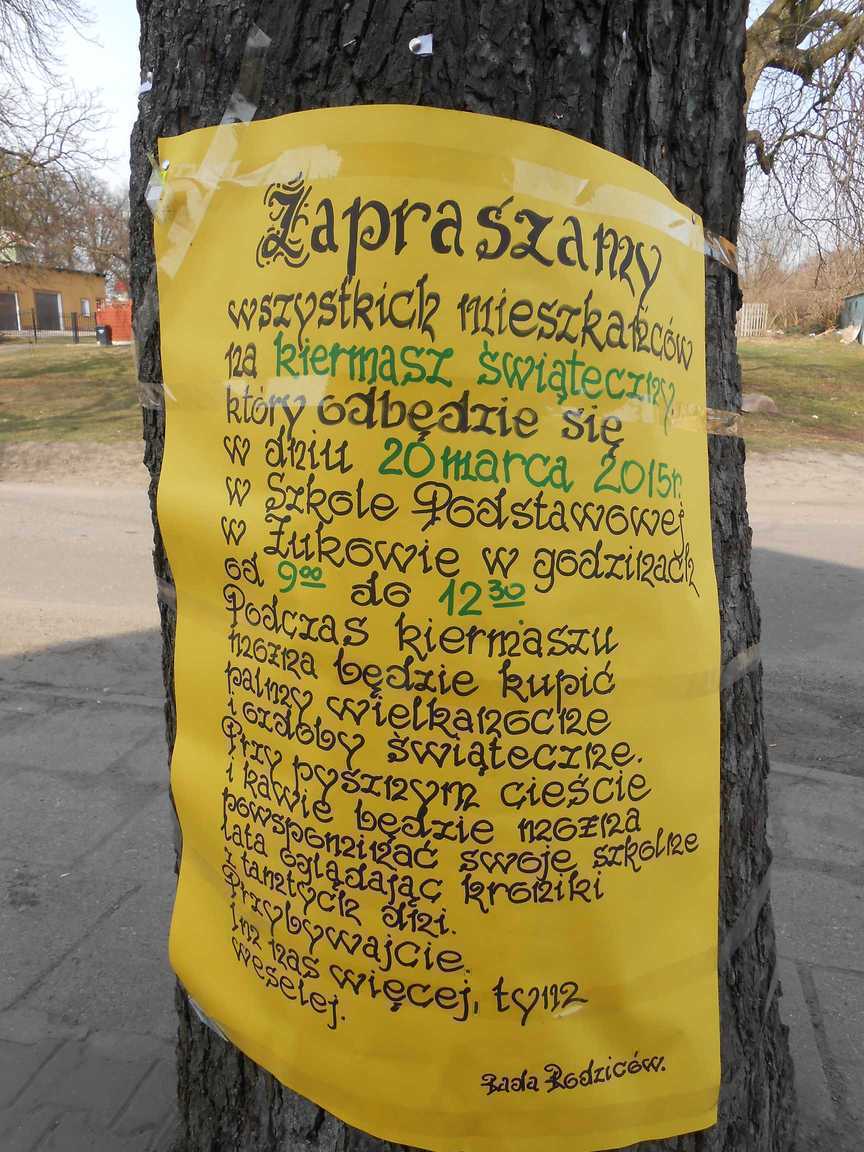 Zapraszamy
wszystkich mieszkańców
na kiermasz świąteczny
który odbędzie się
w dniu 20 marca 2015r.
w Szkole Podstawowej
w Żukowie w godzinach
od 9⁰⁰ do 12³⁰
Podczas kiermaszu
można będzie kupić
palmy wielkanocne
i ozdoby świąteczne.
Przy pysznym cieście
i kawie będzie można
powspominać swoje szkolne
lata oglądając kroniki
z tamtych dni.
Przybywajcie.
Im nas więcej, tym
weselej.
Rada Rodziców.